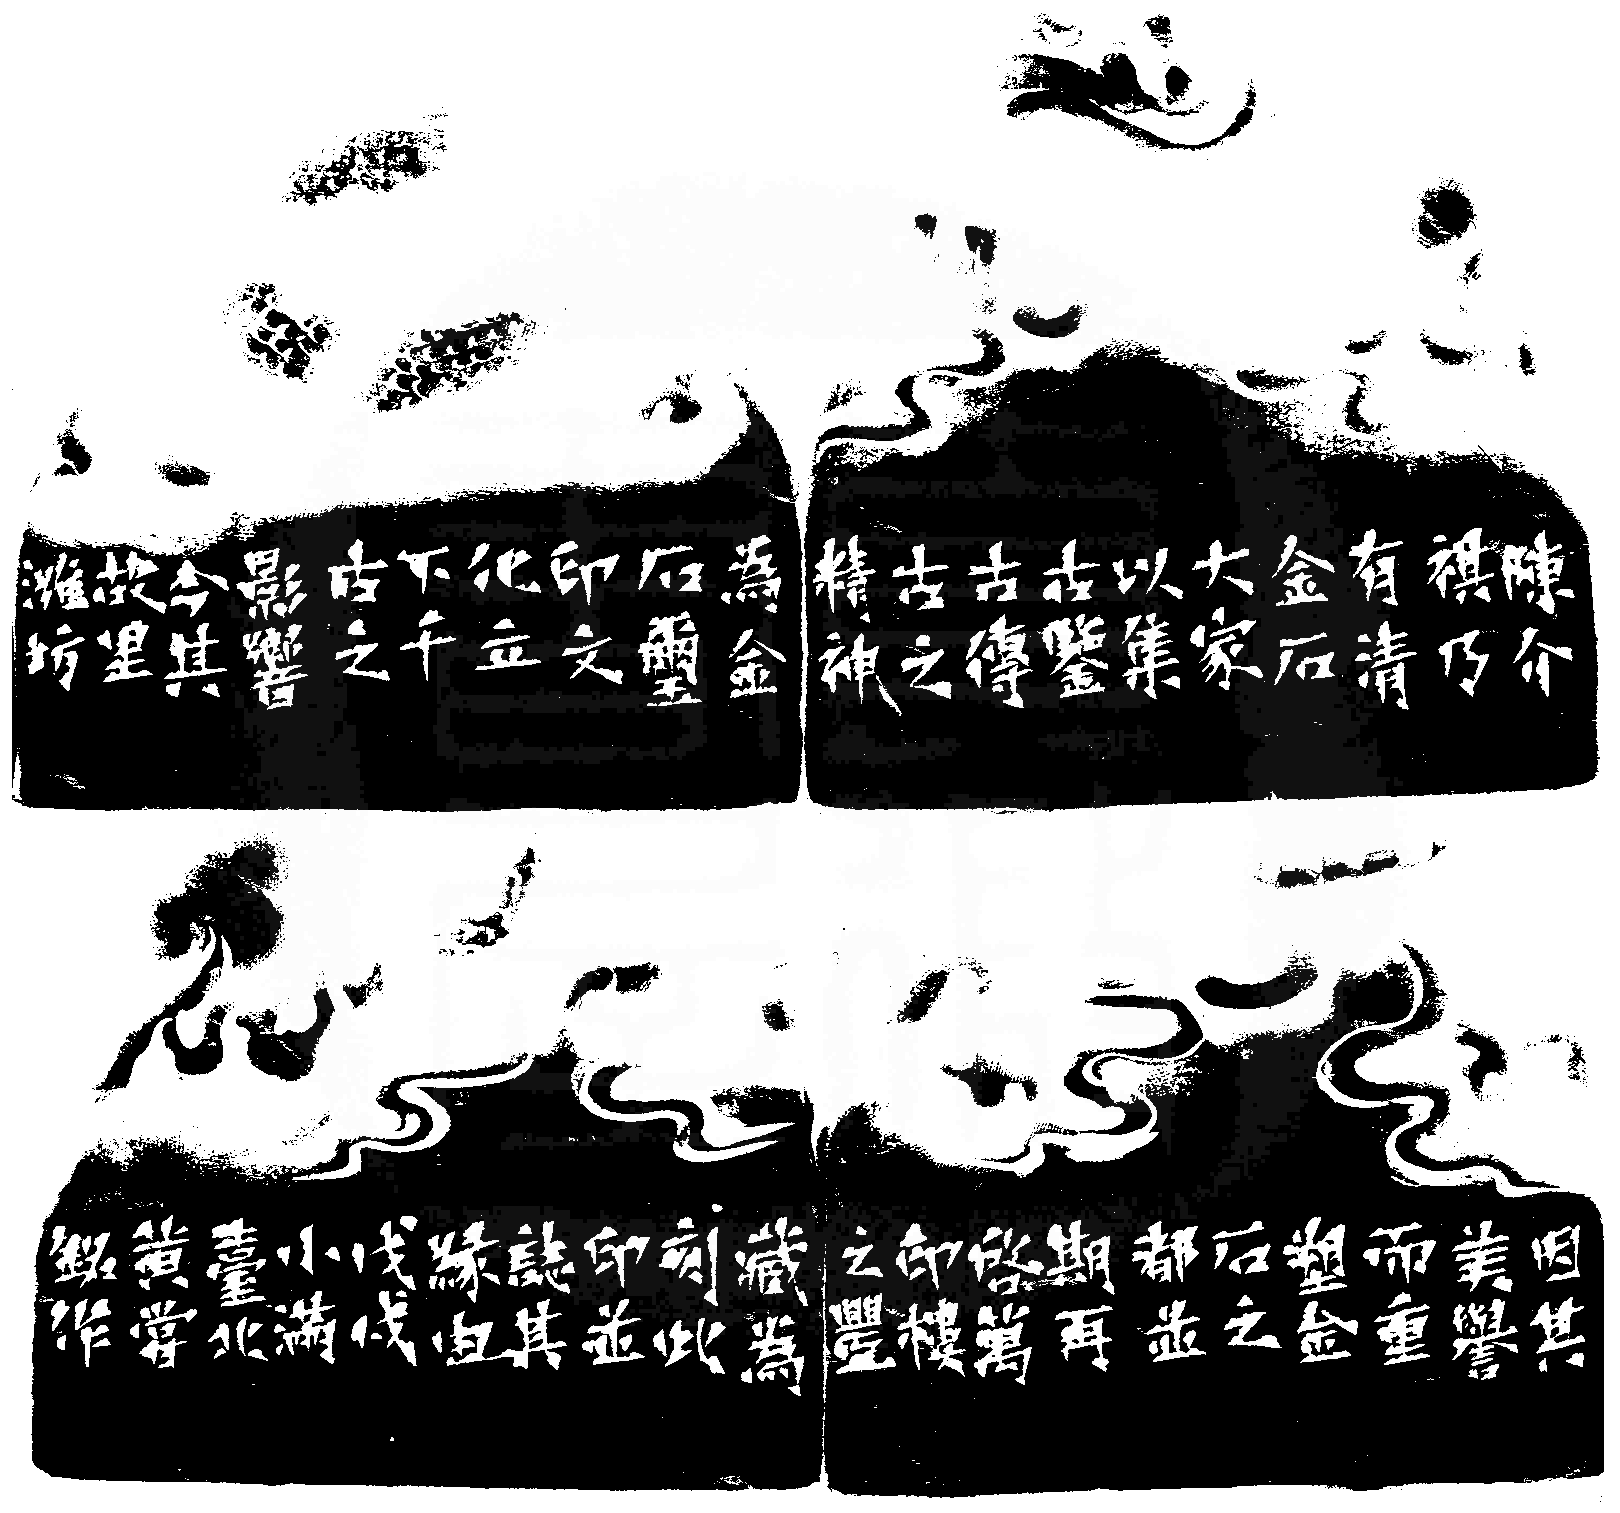 陳介
祺乃
有清
金石
大家
以集
古鑒
古傳
古之
精神
為金
石璽
印文
化立
下千
古之
影響
今其
故里
濰坊
因其
美譽
而重
塑金
石之
都並
期再
啓萬
印樓
之豐
藏為
刻此
印並
誌其
緣由
戊戌
小滿
臺北
黃嘗
銘作